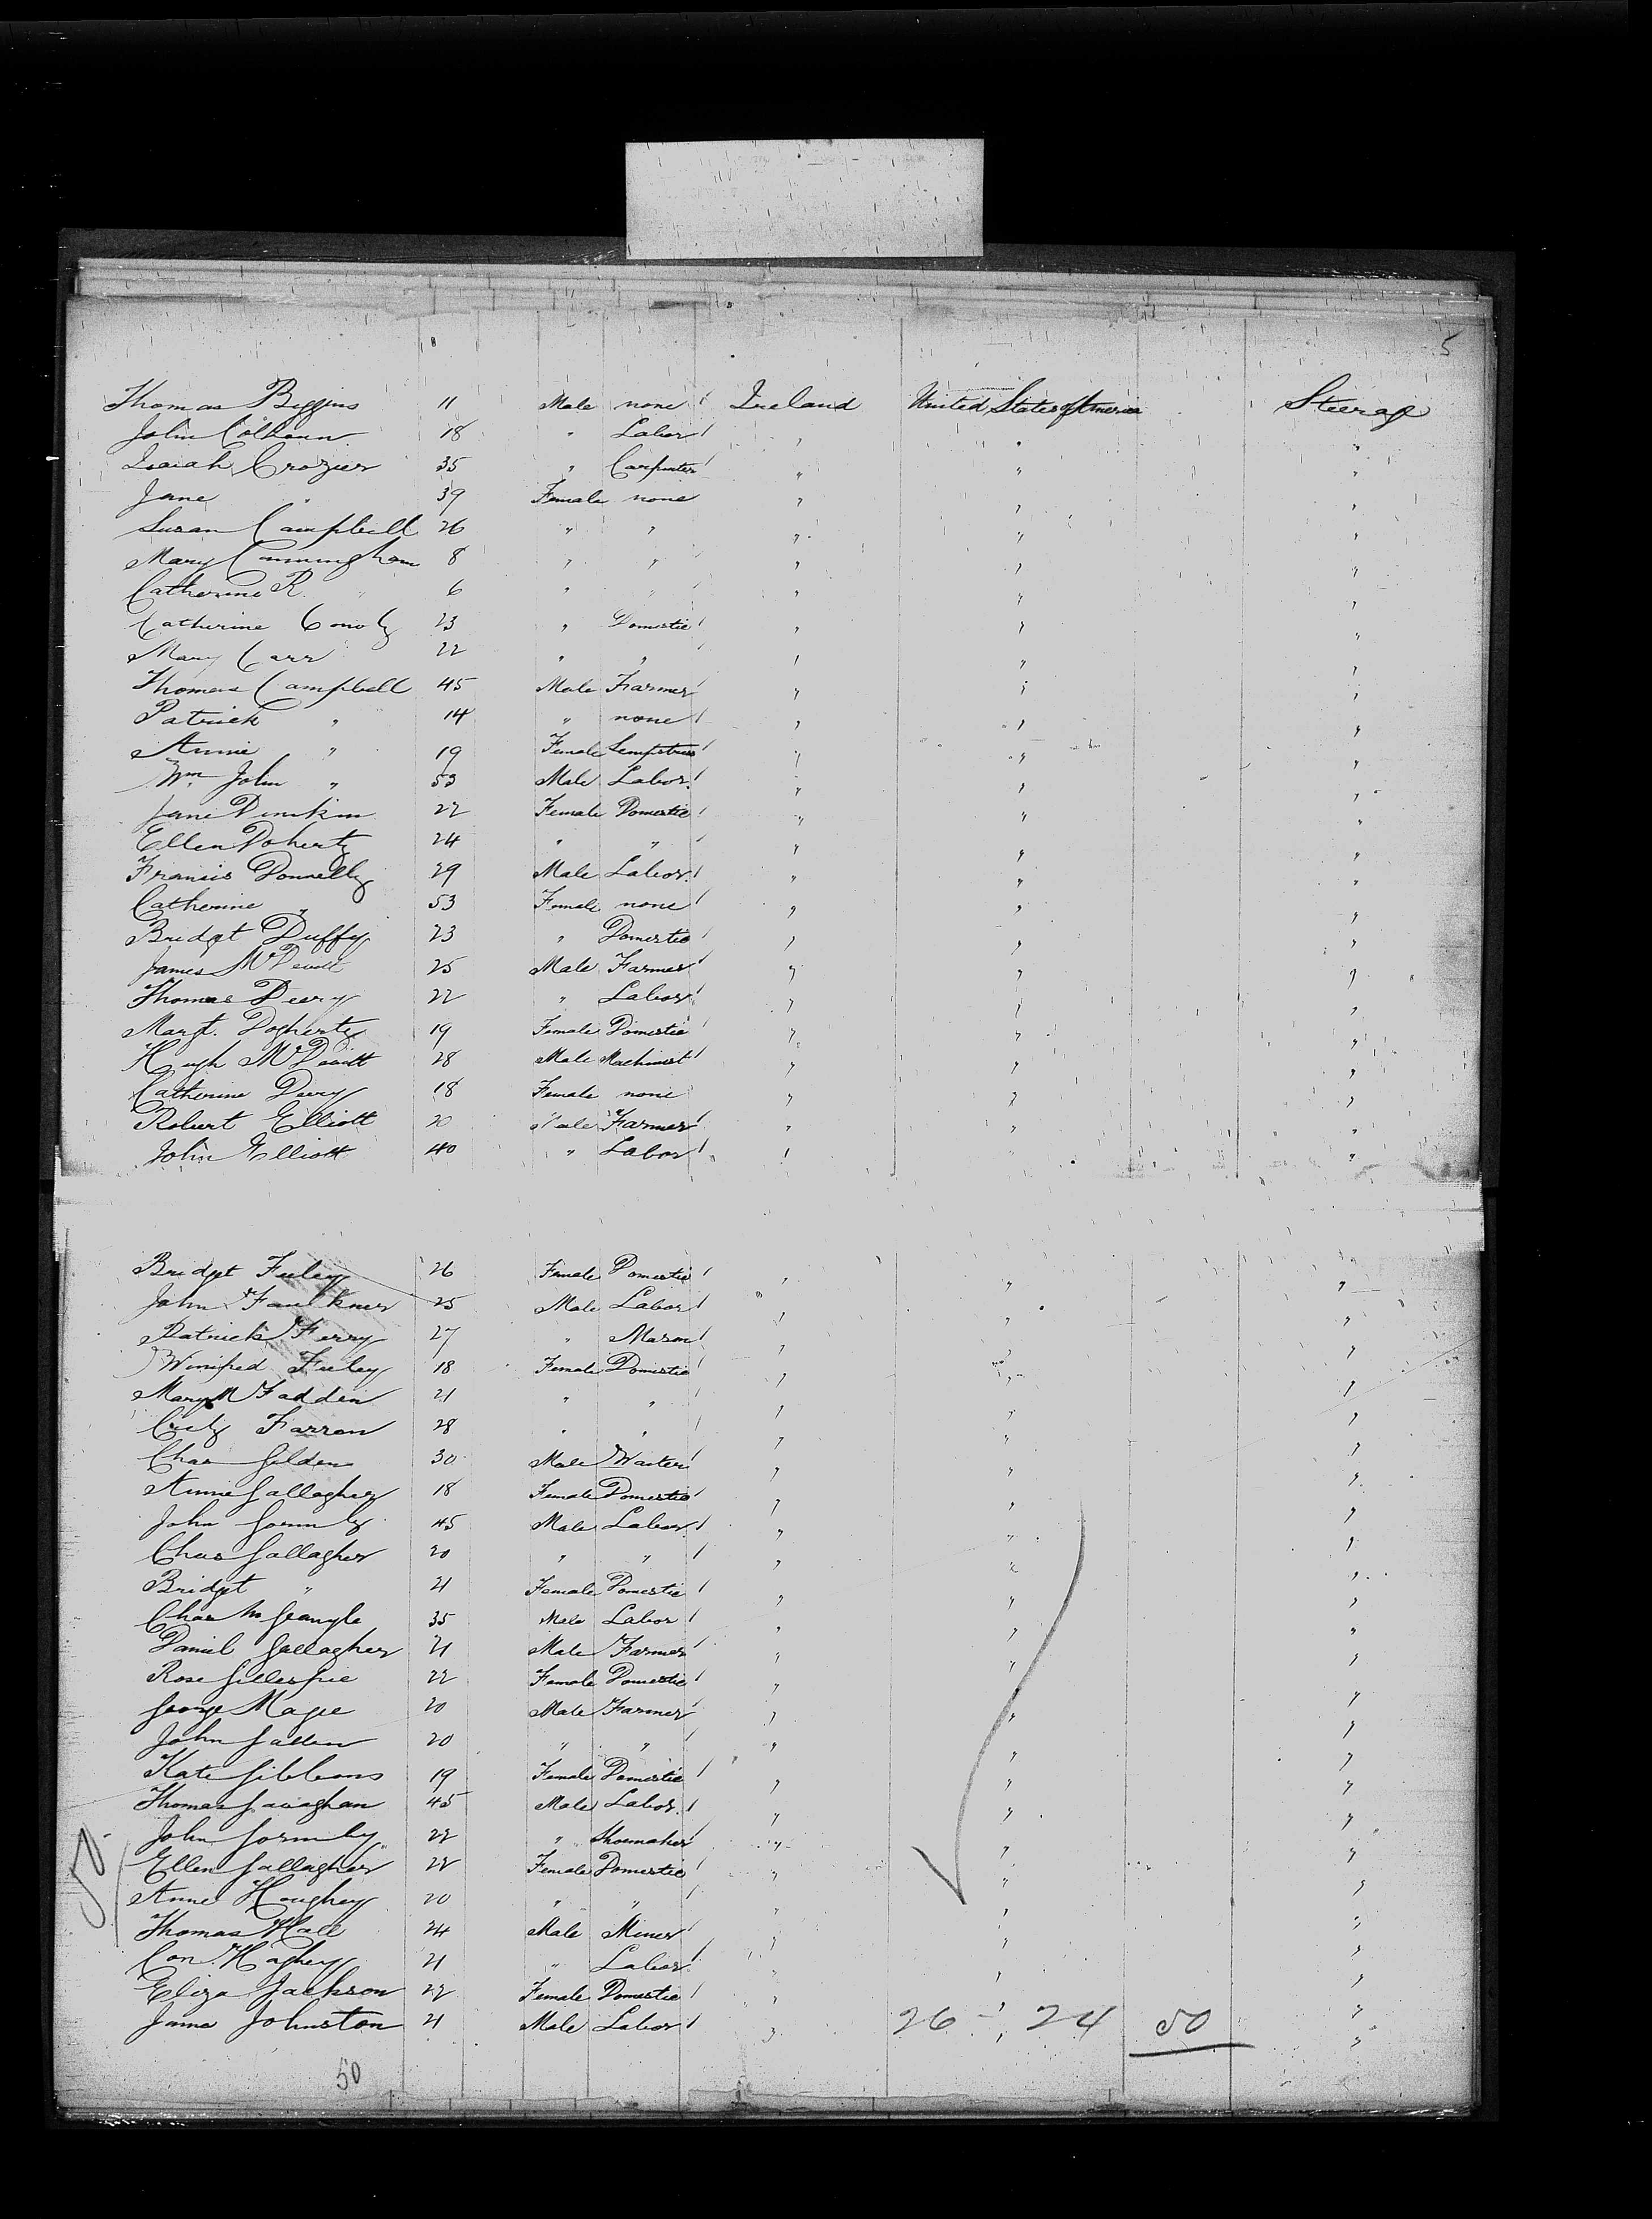 5
Thomas Biggins 11 Male none Ireland United States of America Steerage
John Colhoun 18 " Labor " " "
Isaiah Crozier 35 " Carpenter " " "
Jane " 39 Female none " " "
Susan Campbell 26 " " " " "
Mary Cunningham 8 " " " " "
Catherine R. " 6 " " " " "
Catherine Conoly 23 " Domestic " " "
Mary Carr 22 " " " " "
Thomas Campbell 45 Male Farmer " " "
Patrick " 14 " none " " "
Annie " 19 Female Sempstress " " "
Wm John " 53 Male Labor " " "
Jane 22 Female Domestic " " "
Ellen Doherty 24 " " " " "
Francis Donnelly 29 Male Labor " " "
Catherine " 53 Female none " " "
Bridget Duffy 23 " Domestic " " "
James McDevitt 25 Male Farmer " " "
Thomas Deery 22 " Labor " " "
Margt. Dogherty 19 Female Domestic " " "
Hugh McDevitt 28 Male Machinist " " "
Catherine Deery 18 Female none " " "
Robert Elliott 20 Male Farmer " " "
John Elliott 40 " Labor " " "
Bridget Feeley 26 Female Domestic " " "
John Faulkner 25 Male Labor " " "
Patrick Ferry 27 " Mason " " "
Winifred Feeley 18 Female Domestic " " "
Mary McFadden 21 " " " " "
Cicly Farren 28 " " " " "
Chas Gilden 30 Male Waiter " " "
Annie Gallagher 18 Female Domestic " " "
John Gormly 45 Male Labor " " "
Chas Gallagher 20 " " " " "
Bridget " 21 Female Domestic " " "
Chas 35 Male Labor " " "
Daniel Gallagher 21 Male Farmer " " "
Rose Gillespie 22 Female Domestic " " "
George Magee 20 Male Farmer " " "
John Gallen 20 " " " " "
Kate Gibbons 19 Female Domestic " " "
Thomas Gavaghan 45 Male Labor " " "
John Gormley 22 " Shoemaker " " "
Ellen Gallagher 22 Female Domestic " " "
Anne Houghey 20 " " " " "
Thomas Hall 24 Male Miner " " "
Con. Haghey 21 " Labor " " "
Eliza Jackson 22 Female Domestic " " "
James Johnston 21 Male Labor " " "
50
26 - 24 50
50